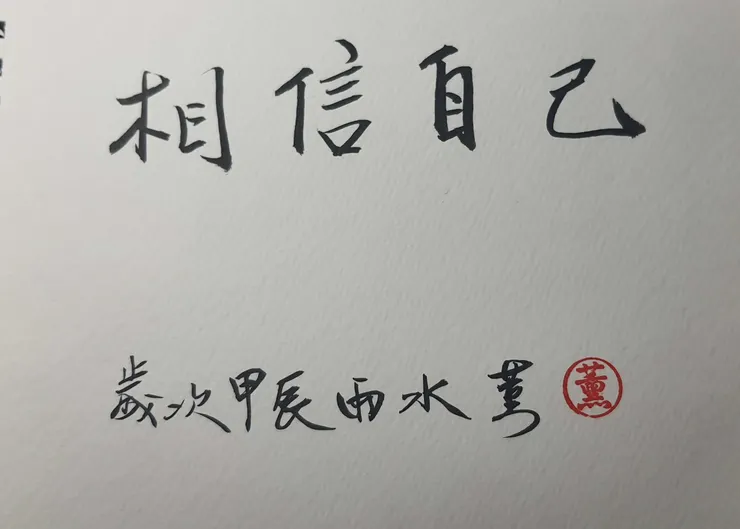 相信自己
歲次甲辰雨水 薰 薰